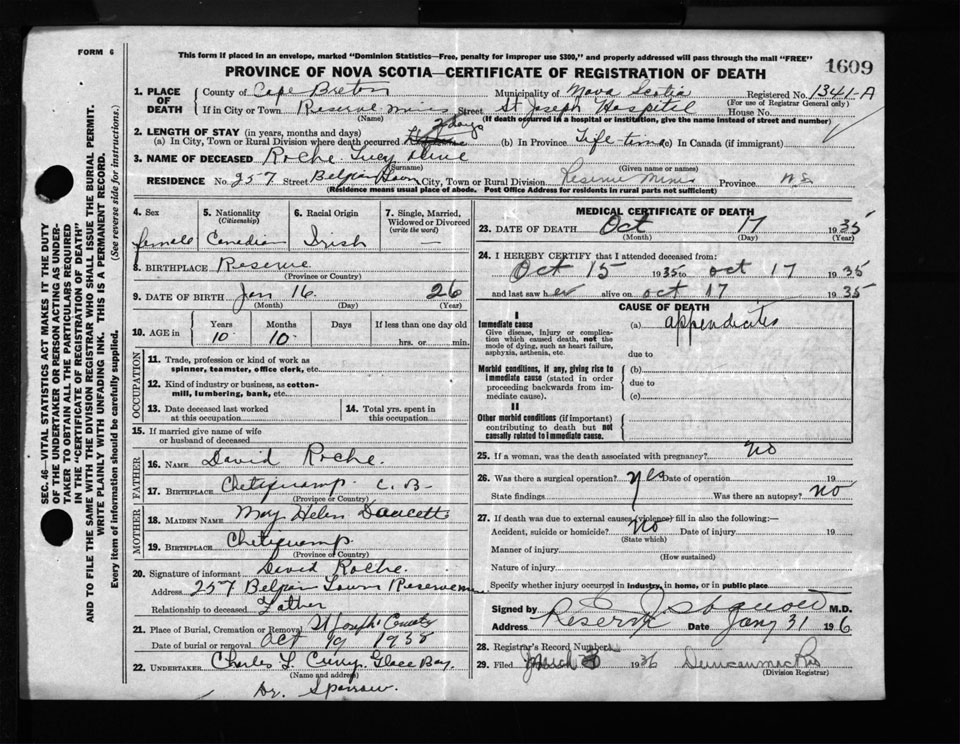 FORM 6
This form if placed in an envelope, marked "Dominion Statistics—Free, penalty for improper use $300," and properly addressed will pass through the mail "FREE"
PROVINCE OF NOVA SCOTIA—CERTIFICATE OF REGISTRATION OF DEATH
1609
1. PLACE OF DEATH
County of Cape Breton Municipality of Nova Scotia Registered No. 1341-A
(For use of Registrar General only)
If in City or Town Reserve mines Street St Joseph Hospital House No.
(Name) (If death occurred in a hospital or institution, give the name instead of street and number)
2. LENGTH OF STAY (in years, months and days)
(a) In City, Town or Rural Division where death occurred 2 days (b) In Province Life time (c) In Canada (if immigrant)
3. NAME OF DECEASED Roche Lucy
(Surname) (Given name or names)
RESIDENCE No. 257 Street Belgian Town City, Town or Rural Division Reserve Mines Province N.S.
(Residence means usual place of abode. Post Office Address for residents in rural parts not sufficient)
SEC. 46—VITAL STATISTICS ACT MAKES IT THE DUTY
OF THE UNDERTAKER OR PERSON ACTING AS UNDER-
TAKER TO OBTAIN ALL THE PARTICULARS REQUIRED
IN THE "CERTIFICATE OF REGISTRATION OF DEATH"
AND TO FILE THE SAME WITH THE DIVISION REGISTRAR WHO SHALL ISSUE THE BURIAL PERMIT.
WRITE PLAINLY WITH UNFADING INK. THIS IS A PERMANENT RECORD.
Every item of information should be carefully supplied. (See reverse side for instructions.)
4. Sex
female
5. Nationality
(Citizenship)
Canadian
6. Racial Origin
Irish
7. Single, Married, Widowed or Divorced
(write the word)
—
8. BIRTHPLACE Reserve
(Province or Country)
9. DATE OF BIRTH Jan 16 26
(Month) (Day) (Year)
10. AGE in
Years Months Days If less than one day old
10 10 hrs. or min.
OCCUPATION
11. Trade, profession or kind of work as
spinner, teamster, office clerk, etc.
12. Kind of industry or business, as cotton-
mill, lumbering, bank, etc.
13. Date deceased last worked
at this occupation
14. Total yrs. spent in
this occupation
15. If married give name of wife
or husband of deceased
FATHER
16. NAME David Roche.
17. BIRTHPLACE Cheticamp C.B.
(Province or Country)
MOTHER
18. MAIDEN NAME May Helen Doucett
19. BIRTHPLACE Cheticamp
(Province or Country)
20. Signature of informant David Roche.
Address 257 Belgian Town Reserve mine
Relationship to deceased Father
21. Place of Burial, Cremation or Removal St Joseph
Date of burial or removal Oct 19 1935
22. UNDERTAKER Charles L Glace Bay.
(Name and address)
Dr. Sparrow.
MEDICAL CERTIFICATE OF DEATH
23. DATE OF DEATH Oct 17 1935
(Month) (Day) (Year)
24. I HEREBY CERTIFY that I attended deceased from:
Oct 15 1935 to Oct 17 1935
and last saw her alive on Oct 17 1935
CAUSE OF DEATH
I
Immediate cause
Give disease, injury or complica-
tion which caused death, not the
mode of dying, such as heart failure,
asphyxia, asthenia, etc.
(a) appendicites
due to
Morbid conditions, if any, giving rise to
immediate cause (stated in order
proceeding backwards from im-
mediate cause).
(b)
due to
(c)
II
Other morbid conditions (if important)
contributing to death but not
causally related to immediate cause.
25. If a woman, was the death associated with pregnancy? no
26. Was there a surgical operation? yes Date of operation 19
State findings Was there an autopsy? no
27. If death was due to external causes (violence) fill in also the following:—
Accident, suicide or homicide? no Date of injury 19
(State which)
Manner of injury
(How sustained)
Nature of injury
Specify whether injury occurred in industry, in home, or in public place
Signed by M.D.
Address Reserve Date Jany 31 1936
28. Registrar's Record Number
29. Filed March 1936 Duncan MacRae
(Division Registrar)